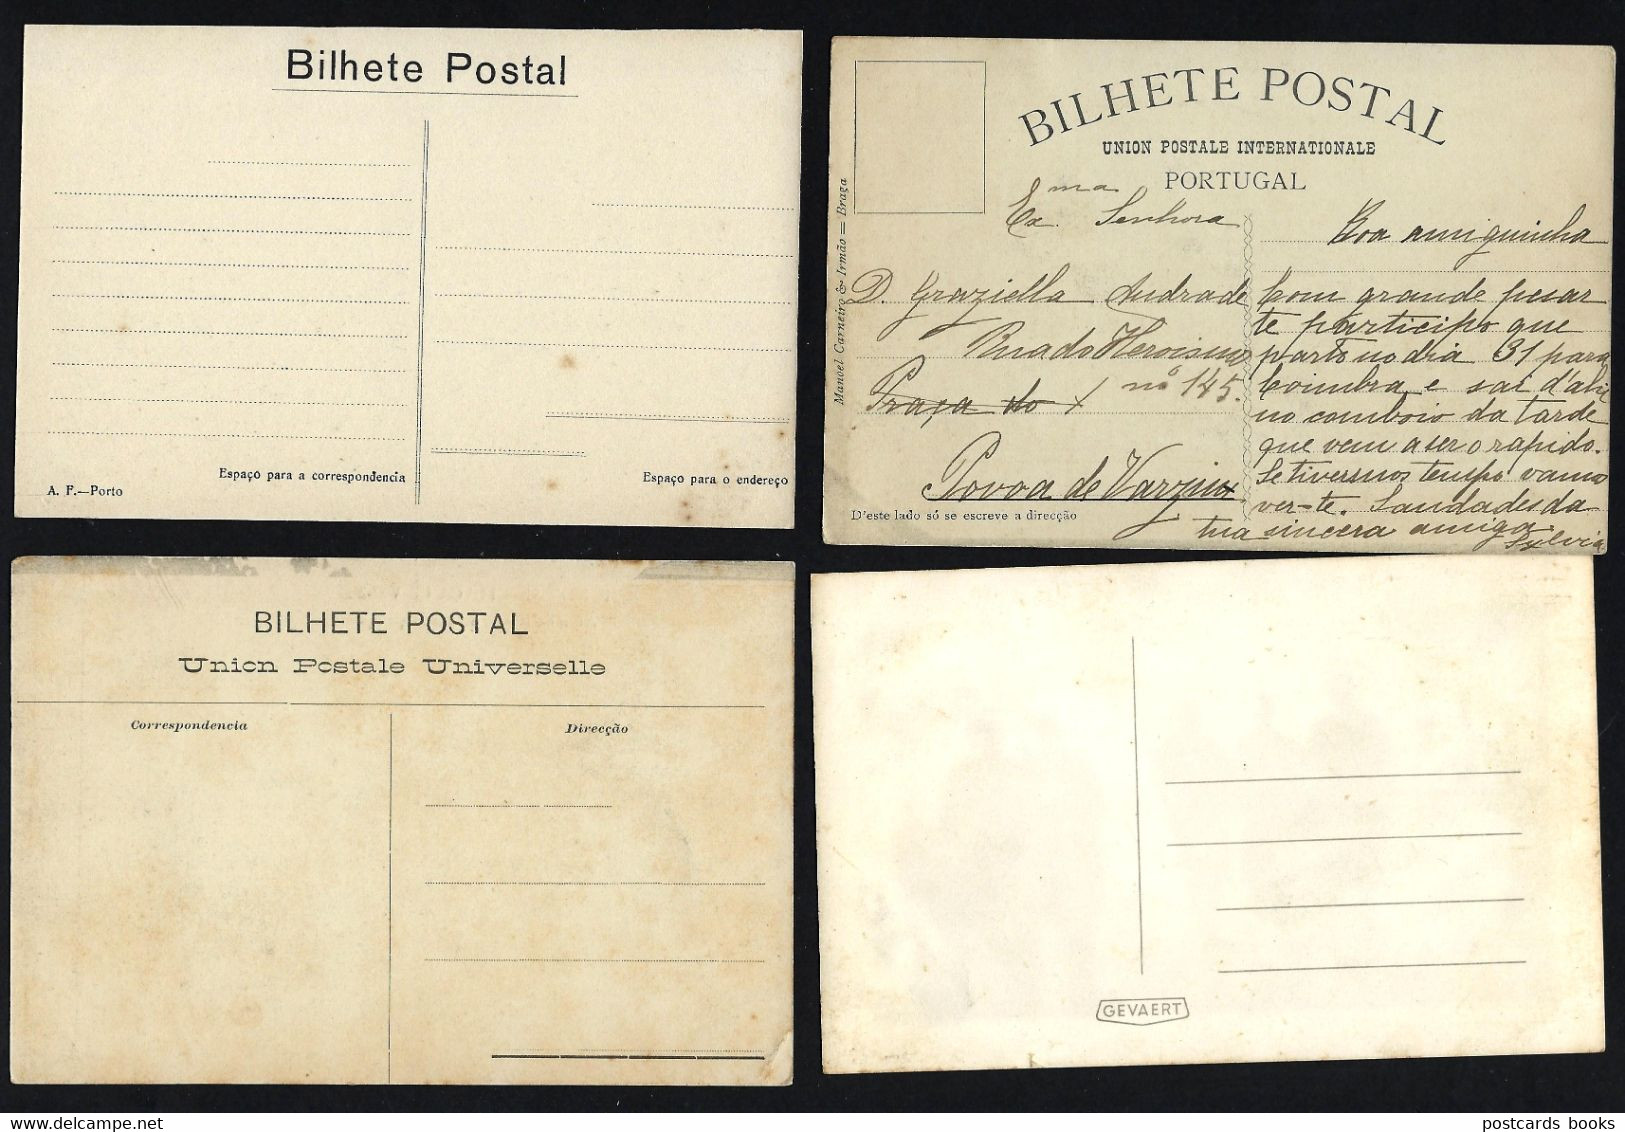 Bilhete Postal
Espaço para a correspondencia
Espaço para o endereço
A. F.—Porto
BILHETE POSTAL
UNION POSTALE INTERNATIONALE
PORTUGAL
Manoel Carneiro & Irmão = Braga
Exma. Senhora
D. Graziella Andrade
Rua do Heroismo
nº 145.
Praça do x
Povoa de Varzim
D'este lado só se escreve a direcção
Boa amiguinha
Com grande pesar
te participo que
parto no dia 31 para
Coimbra e sai d'ahi
no comboio da tarde
que vem a ser o rapido.
Se tivermos tempo vamos
ver-te. Saudades da
tua sincera amiga
Sylvia
BILHETE POSTAL
Union Postale Universelle
Correspondencia
Direcção
GEVAERT
postcards books